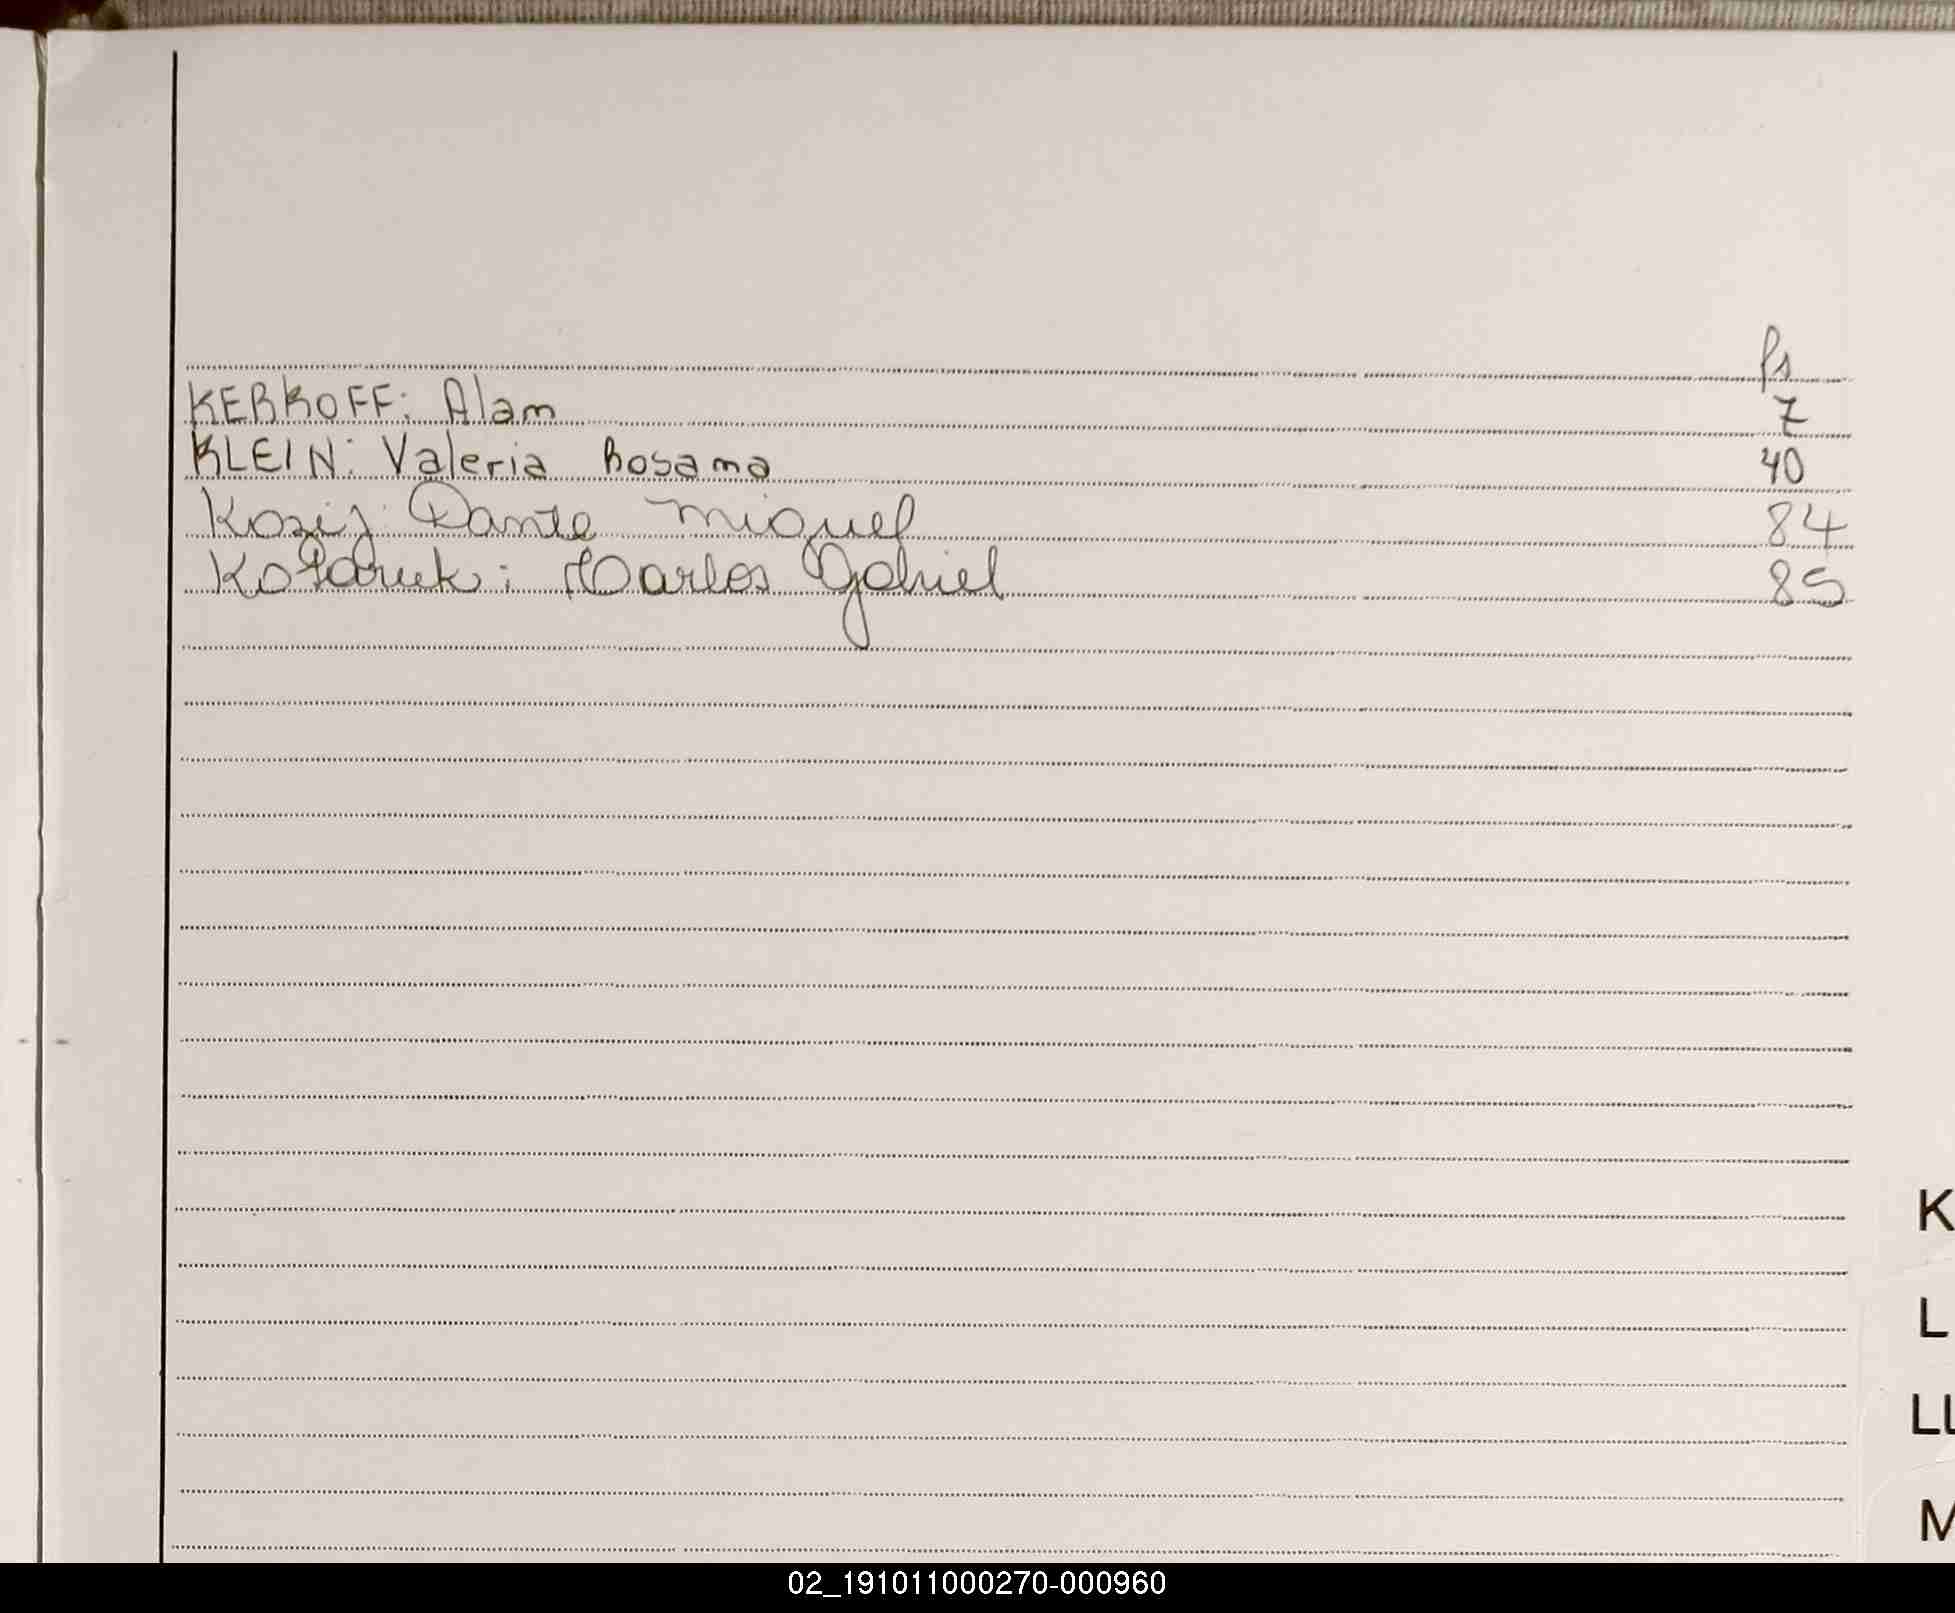 fs
KERKOFF: Alam 7
KLEIN: Valeria Rosana 40
Kozij: Dante Miguel 84
Kotaruk: Carlos Gabriel 85
K
L
LL
M
02_191011000270-000960